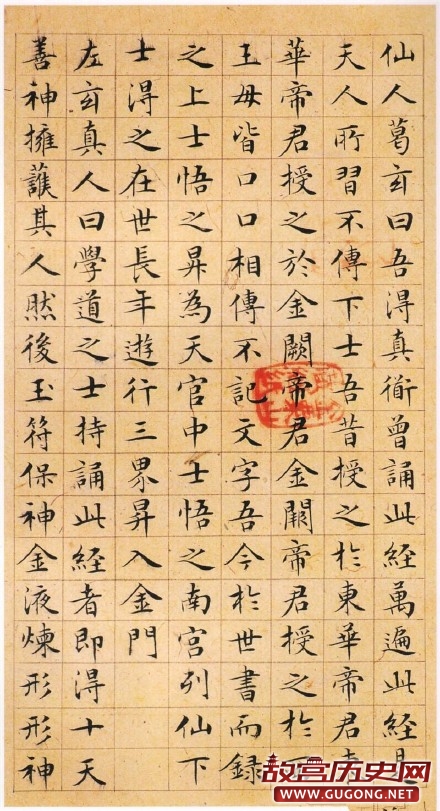 仙人葛玄曰吾得真衜曾誦此經萬遍此經是
天人所習不傳下士吾昔授之於東華帝君東
華帝君授之於金闕帝君金闕帝君授之於
王母皆口口相傳不記文字吾今於世書而録
之上士悟之昇為天官中士悟之南宫列仙下
士得之在世長年遊行三界昇入金門
左玄真人曰學道之士持誦此經者即得十天
善神擁護其人然後玉符保神金液煉形形神
故宫历史网
www.GUGONG.NET